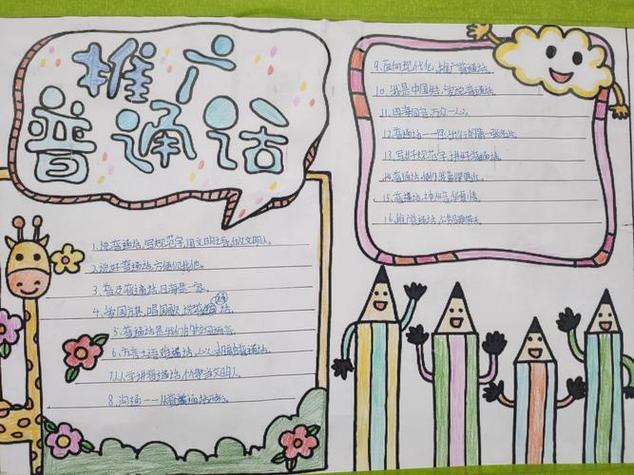 推广
普通话
1.说普通话,写规范字,用文明语言,做文明人。
2.说好普通话,方便你我他。
3.普及普通话,四海是一家。
4.爱国旗,唱国歌,说普通话。
5.普通话是我们的校园语言。
7.人人学讲普通话,个个争当文明人。
8.沟通——从普通话开始。
9.面向现代化,推广普通话。
10.我是中国娃,爱说普通话。
11.四海同音,万众一心。
12.普通话——你出行的第一张名片。
13.写好规范字,讲好普通话。
14.普通话,
15.普通话,
16.推广普通话,